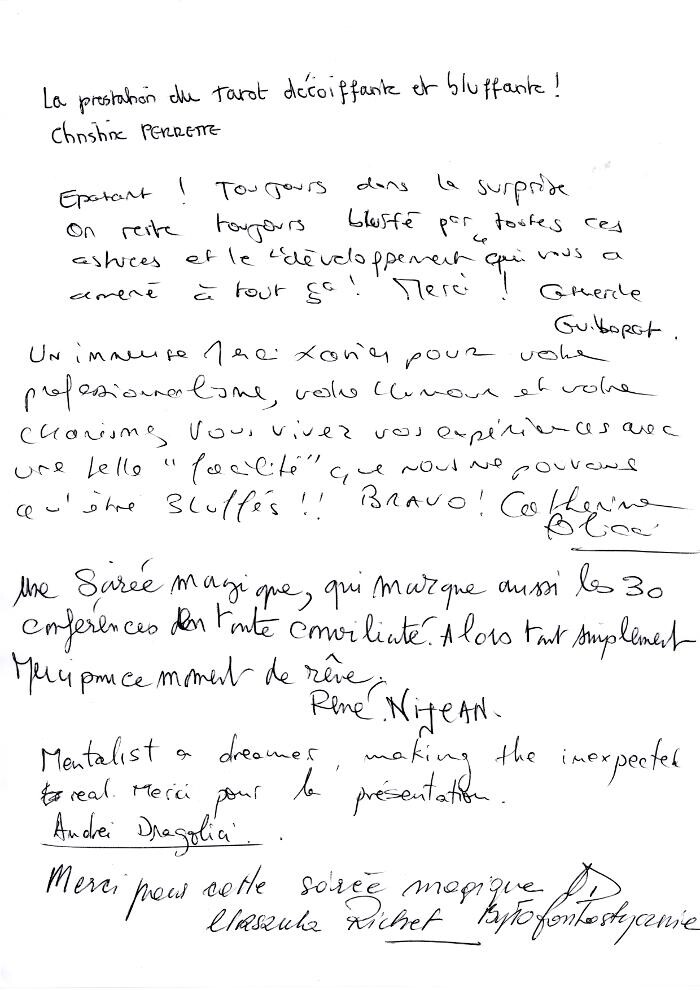 La prestation du tarot décoiffante et bluffante !
Christine PERRETTE
Epatant ! Toujours dans la surprise
On reste toujours bluffé par toutes ces
astuces et le "développement" qui vous a
amené à tout ça ! Merci ! Catherine
Un immense Merci Xavier pour votre
professionnalisme, votre humour et votre
charisme, Vous vivez vos expériences avec
une telle "facilité" que nous ne pouvons
qu'être Bluffés !! BRAVO ! Catherine
Une Soirée magique, qui marque aussi les 30
conférences en toute convivialité. Alors tout simplement
Merci pour ce moment de rêve.
René NIJEAN.
Mentalist a dreamer, making the inexpected
real. Merci pour la présentation.
Andrei Dragolici.
Merci pour cette soirée magique
Urszula Richet Było fantastycznie